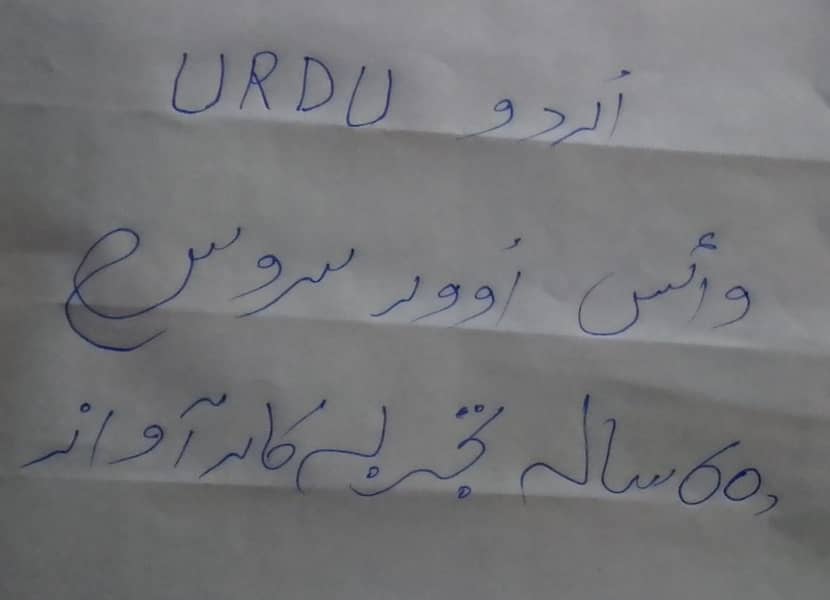 URDU اُردو
وائس اُوور سروس
60 سالہ تجربہ کار آواز